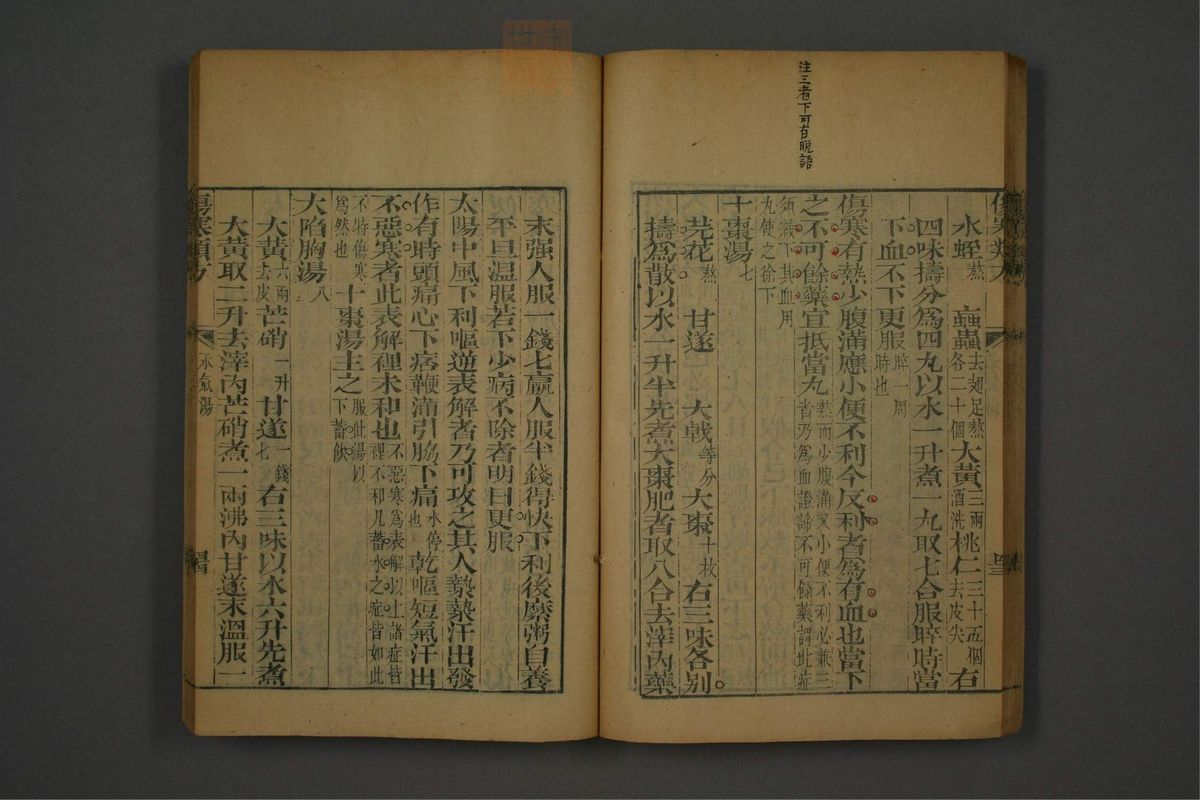 注三者下可有脫語
水蛭熬　䗪蟲去翅足熬各二十個大黃三兩酒洗桃仁三十五個去皮尖右
四味擣分爲四丸以水一升煮一丸取七合服晬時當
下血不下更服晬時一周時也
傷寒有熱少腹滿應小便不利今反利者爲有血也當下
之不可餘藥宜抵當丸熱而少腹滿又小便不利必兼三者乃爲血證諦不可餘藥謂此症
須緩下其血用丸使之徐下
十棗湯七
芫花熬　甘遂　大戟等分大棗十枚右三味各別
擣爲散以水一升半先煮大棗肥者取八合去滓內藥
末强人服一錢七羸人服半錢得快下利後糜粥自養
平旦温服若下少病不除者明日更服
太陽中風下利嘔逆表解者乃可攻之其人漐漐汗出發
作有時頭痛心下痞鞕滿引脇下痛水停也乾嘔短氣汗出
不惡寒者此表解裡未和也不惡寒爲表解以上諸症皆裡不和凡蓄水之症皆如此
不特傷寒爲然也十棗湯主之服此湯以下蓄飲
大陷胸湯八
大黃六兩去皮芒硝一升甘遂一錢七右三味以水六升先煮
大黃取二升去滓內芒硝煮一兩沸內甘遂末溫服一
傷寒類方　承氣湯